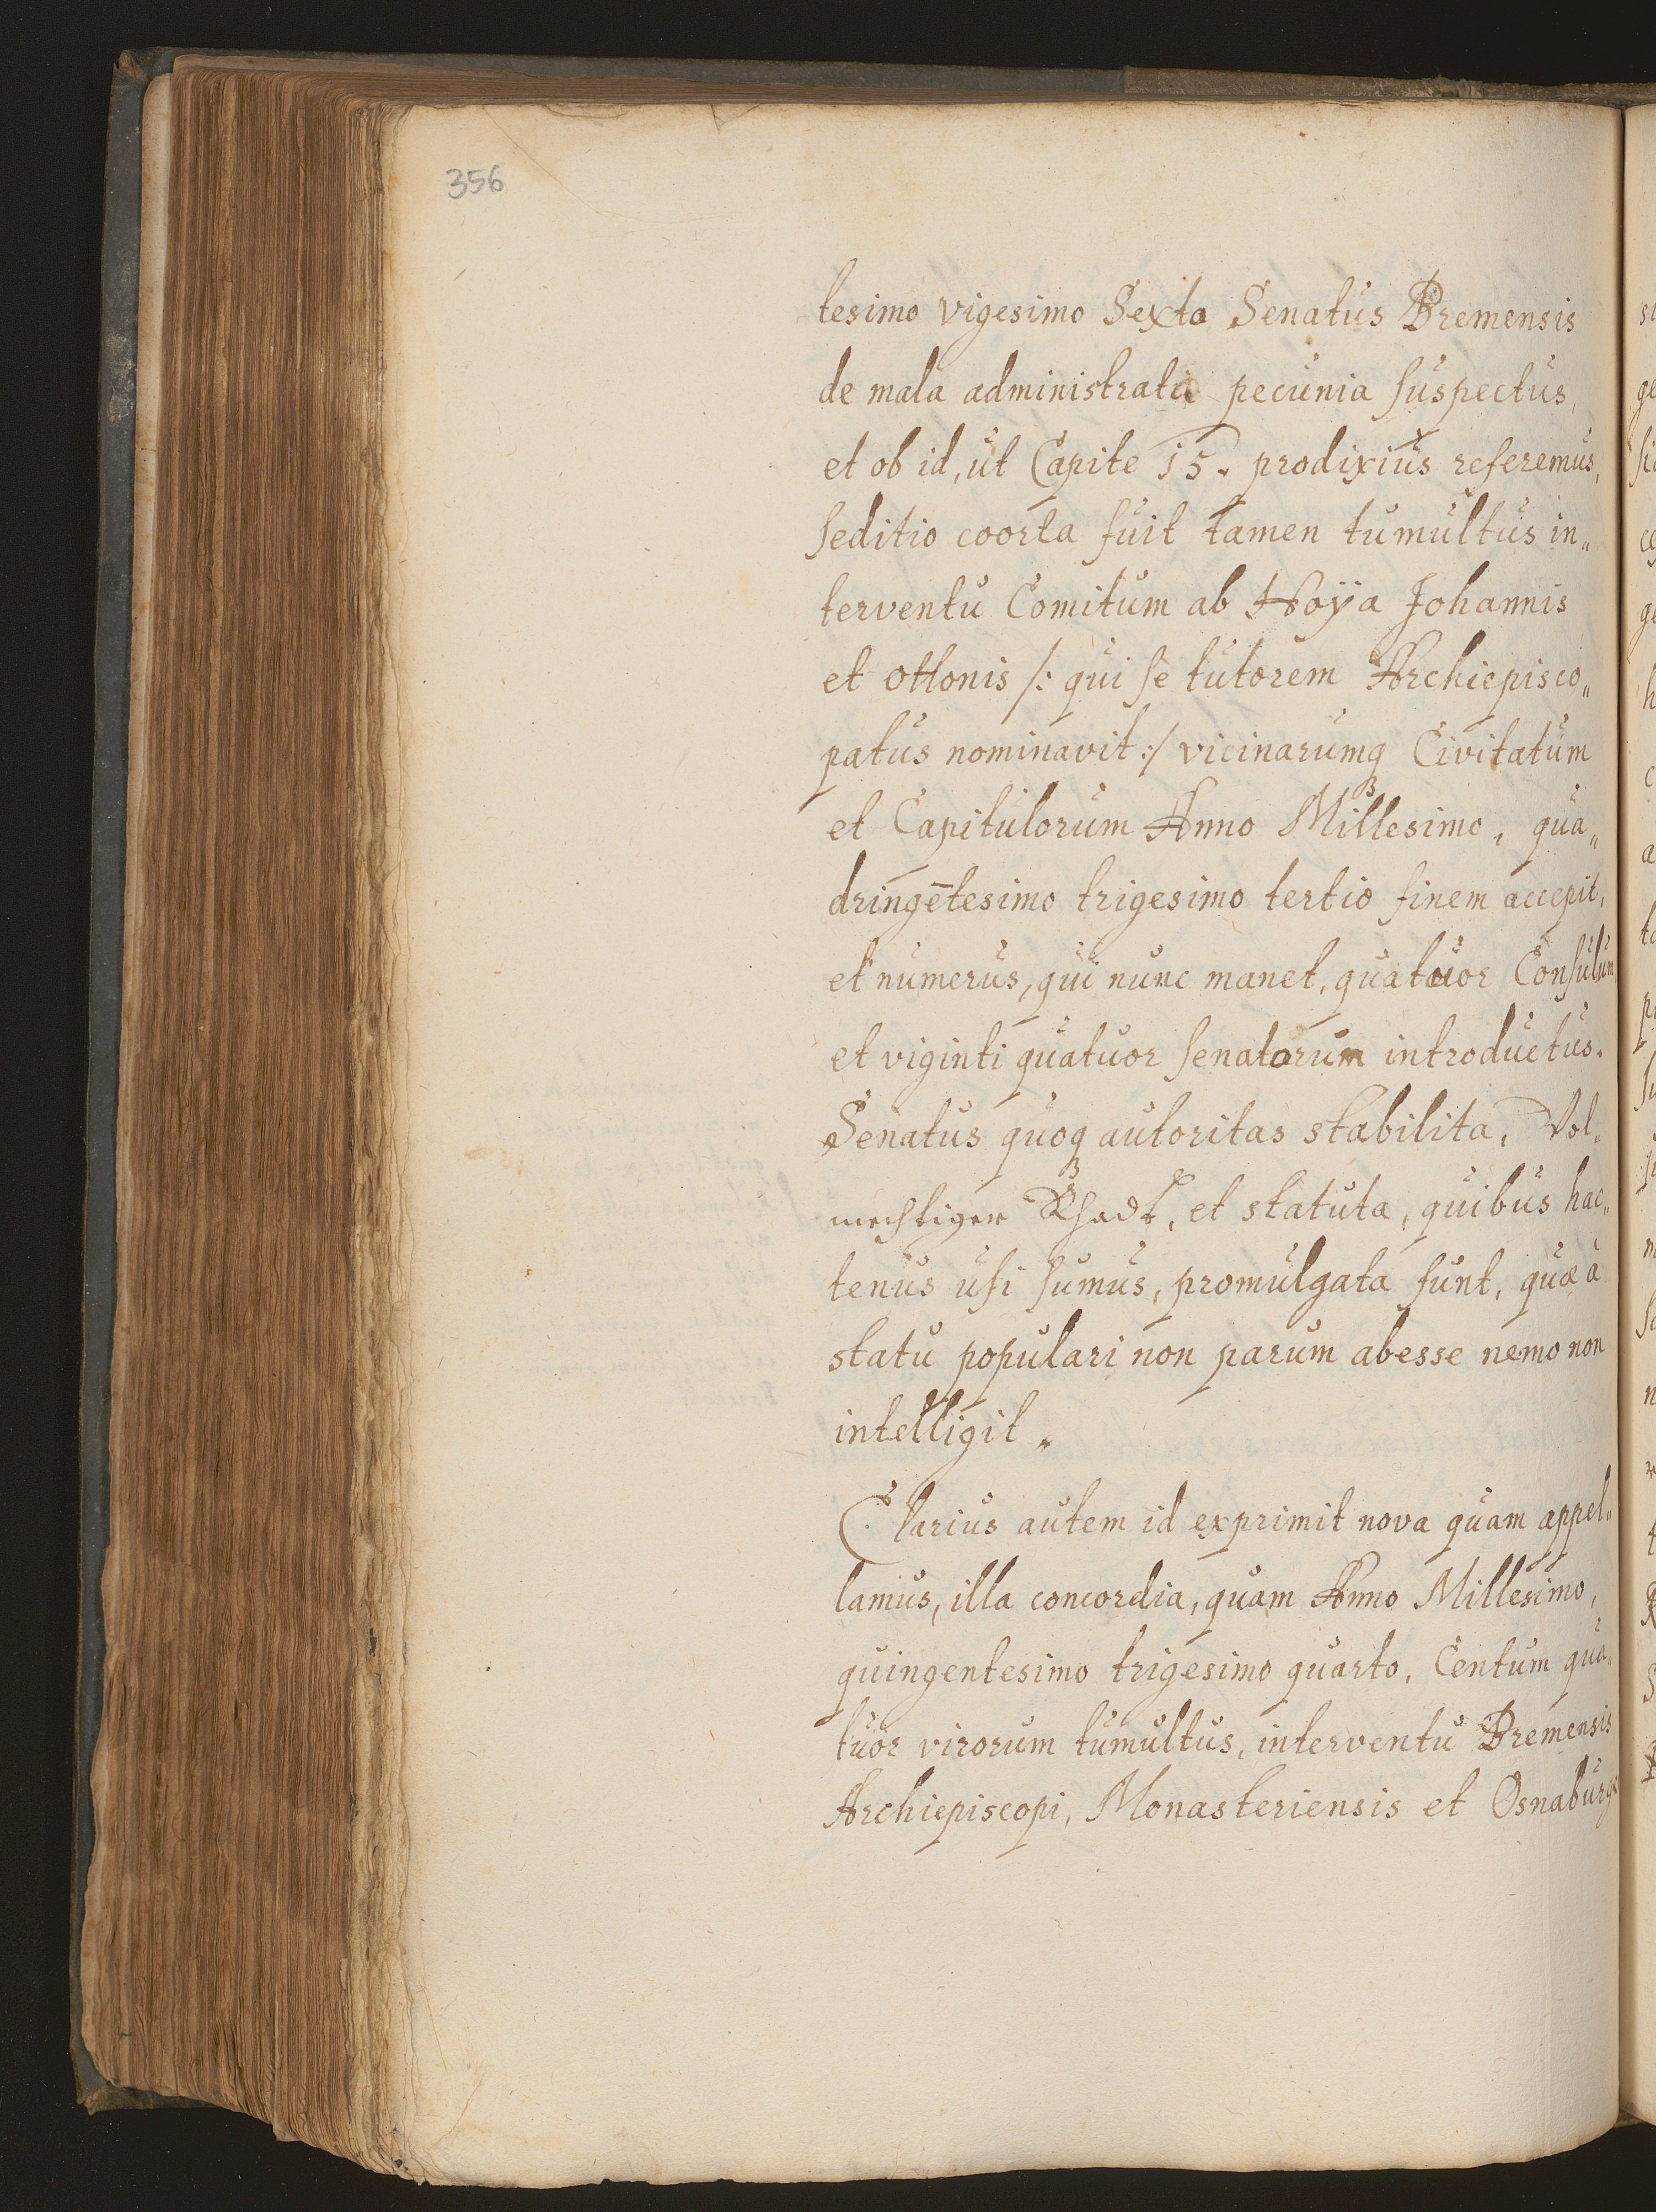 356
tesimo vigesimo Sexto Senatus Bremensis
de mala administrata pecunia suspectus,
et ob id, ut Capite 15. prodixius referemus,
seditio coorta fuit tamen tumultus in„
terventu Comitum ab Hoÿa Johannis
et Ottonis /: qui se tutorem Archiepisco„
patus nominavit :/ vicinarumq3 Civitatum
et Capitulorum Anno Millesimo, qua„
dringētesimo trigesimo tertio finem accepit,
et numerus, qui nunc manet, quatuor Consulum
et viginti quatuor senatorum introductus.
Senatus quoq3 autoritas stabilita, Vol„
mechtiger Rhadt, et statuta, quibus hac„
tenus usi sumus, promulgata sunt, quæ à
statu populari non parum abesse nemo non
intelligit„
Clarius autem id exprimit nova quam appel„
lamus, illa concordia, quam Anno Millesimo,
quingentesimo trigesimo quarto, Centum qua„
tuor virorum tumultus, interventu Bremensis
Archiepiscopi, Monasteriensis et Osnaburg